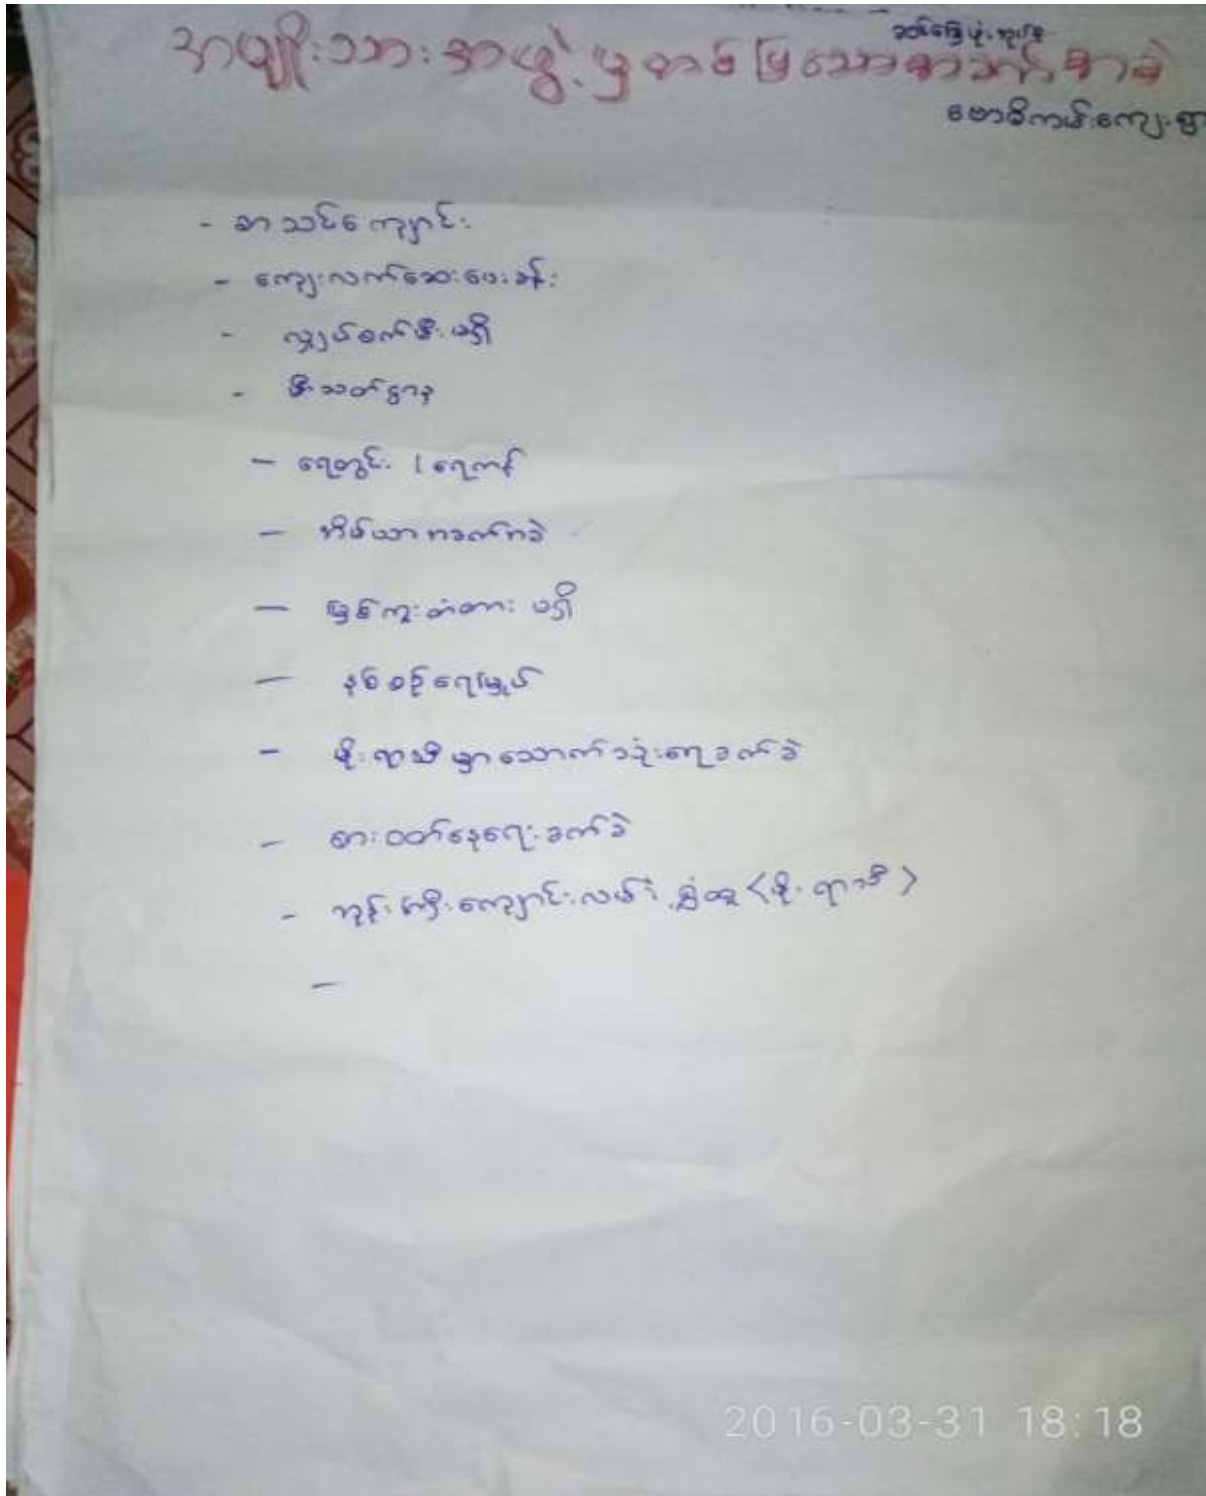 အမျိုးသားအဖွဲ့မှတင်ပြသောအခက်အခဲ
ဗောဓိကမ်းကျေးရွာ
- စာသင်ကျောင်း
- ကျေးလက်ဆေးပေးခန်း
- လျှပ်စစ်မီးမရှိ
- မီးသတ်ဌာန
- ရေတွင်း / ရေကန်
- အိမ်သာအခက်အခဲ
- မြစ်ကူးတံတား မရှိ
- နှစ်စဉ်ရေမြှုပ်
- မိုးရာသီမှာသောက်သုံးရေခက်ခဲ
- စားဝတ်နေရေးခက်ခဲ
- ဘုန်းကြီးကျောင်းလမ်း ရွှံ့ထူ <မိုးရာသီ>
-
2016-03-31 18:18